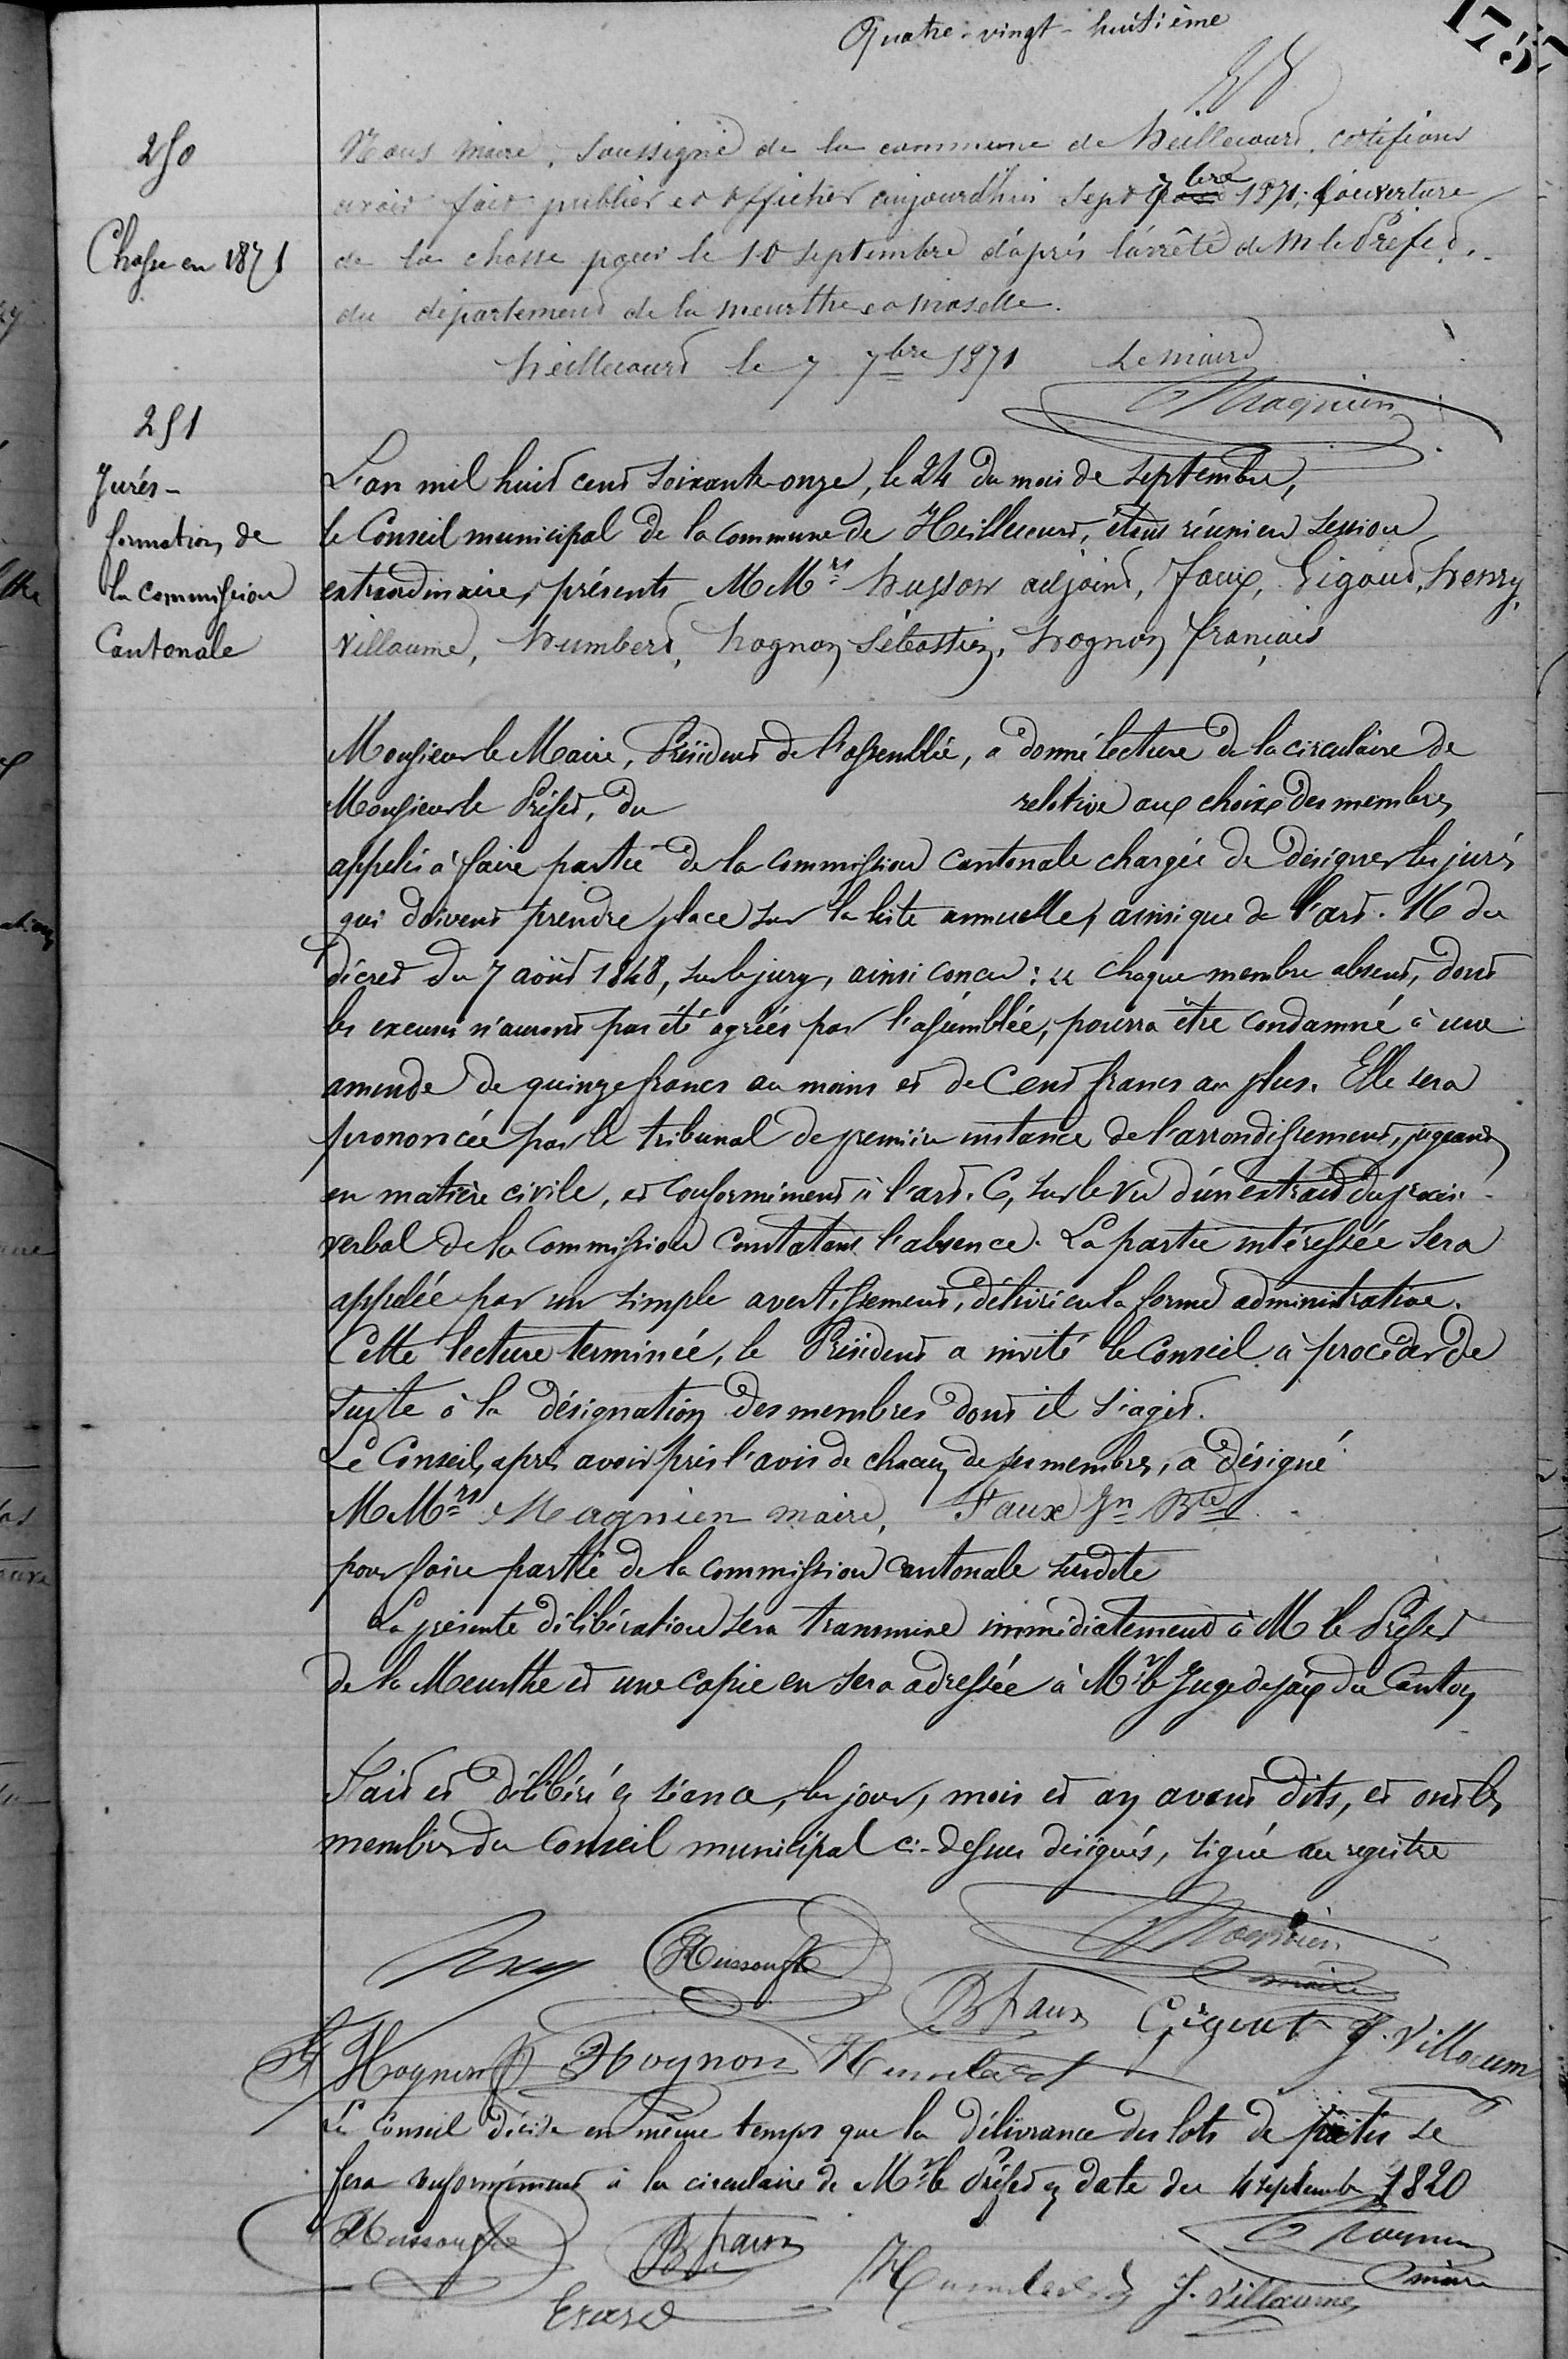 Quatre-vingt-huitième
175
250
Chasse en 1871
Nous maire, soussigné de la commune de heillecourt, certifions
avoir fait publier et afficher aujourd'hui sept 7bre 1871, l'ouverture
de la chasse pour le 10 septembre d'après l'arrêté de M le Préfet,
du département de la meurthe et moselle.
heillecourt le 7 7bre 1871 Le maire
Magnien
251
Jurés-
formation de
la commission
Cantonale
L'an mil huit cent soixante-onze, le 24 du mois de septembre,
le Conseil municipal de la commune de Heillecourt, étant réuni en session
extraordinaire, présents MMrs husson adjoint, faux, Gigout, henry,
villaume, humbert, hognon Sébastien, hognon français
Monsieur le Maire, Président de l'assemblée, a donné lecture de la circulaire de
Monsieur le Préfet, du relative aux choix des membres
appelés à faire partie de la commission cantonale chargée de désigner les jurés
qui doivent prendre place sur la liste annuelle, ainsi que de l'art. 16 du
décret du 7 août 1848, sur le jury, ainsi concu : « chaque membre absent, dont
les excuses n'auront pas été agréés par l'assemblée, pourra être condamné à une
amende de quinze francs au moins et de Cent francs au plus. Elle sera
prononcée par le tribunal de première instance de l'arrondissement, jugeant
en matière civile, et conformément à l'art. 6, sur le vu d'un extrait du procès-
verbal de la commission constatant l'absence. La partie intéressée sera
appelée par un simple avertissement, délivré en la forme administrative.
Cette lecture terminée, le Président a invité le Conseil à procéder de
suite à la désignation des membres dont il s'agit.
Le Conseil, après avoir pris l'avis de chacun de ses membres, a désigné
MMrs Magnien maire, Faux Jn Bte
pour faire partie de la commission cantonale susdite
La présente délibération sera transmise immédiatement à M le Préfet
de la Meurthe et une copie en sera adressée à Mr le Juge de paix du Canton
Fait et délibéré en séance, les jour, mois et an avant dits, et ont les
membres du Conseil municipal ci-dessus désignés, signé au registre
Henry Husson Magnien
maire
B faux Gigout J. Villaume
F Hognon S Hognon Humbert
Le Conseil décide en même temps que la délivrance des lots de pâtis se
fera conformément à la circulaire de Mr le Préfet en date du 4 septembre 1820
Husson B faux Magnien
maire
Erard Humbert J. Villaume